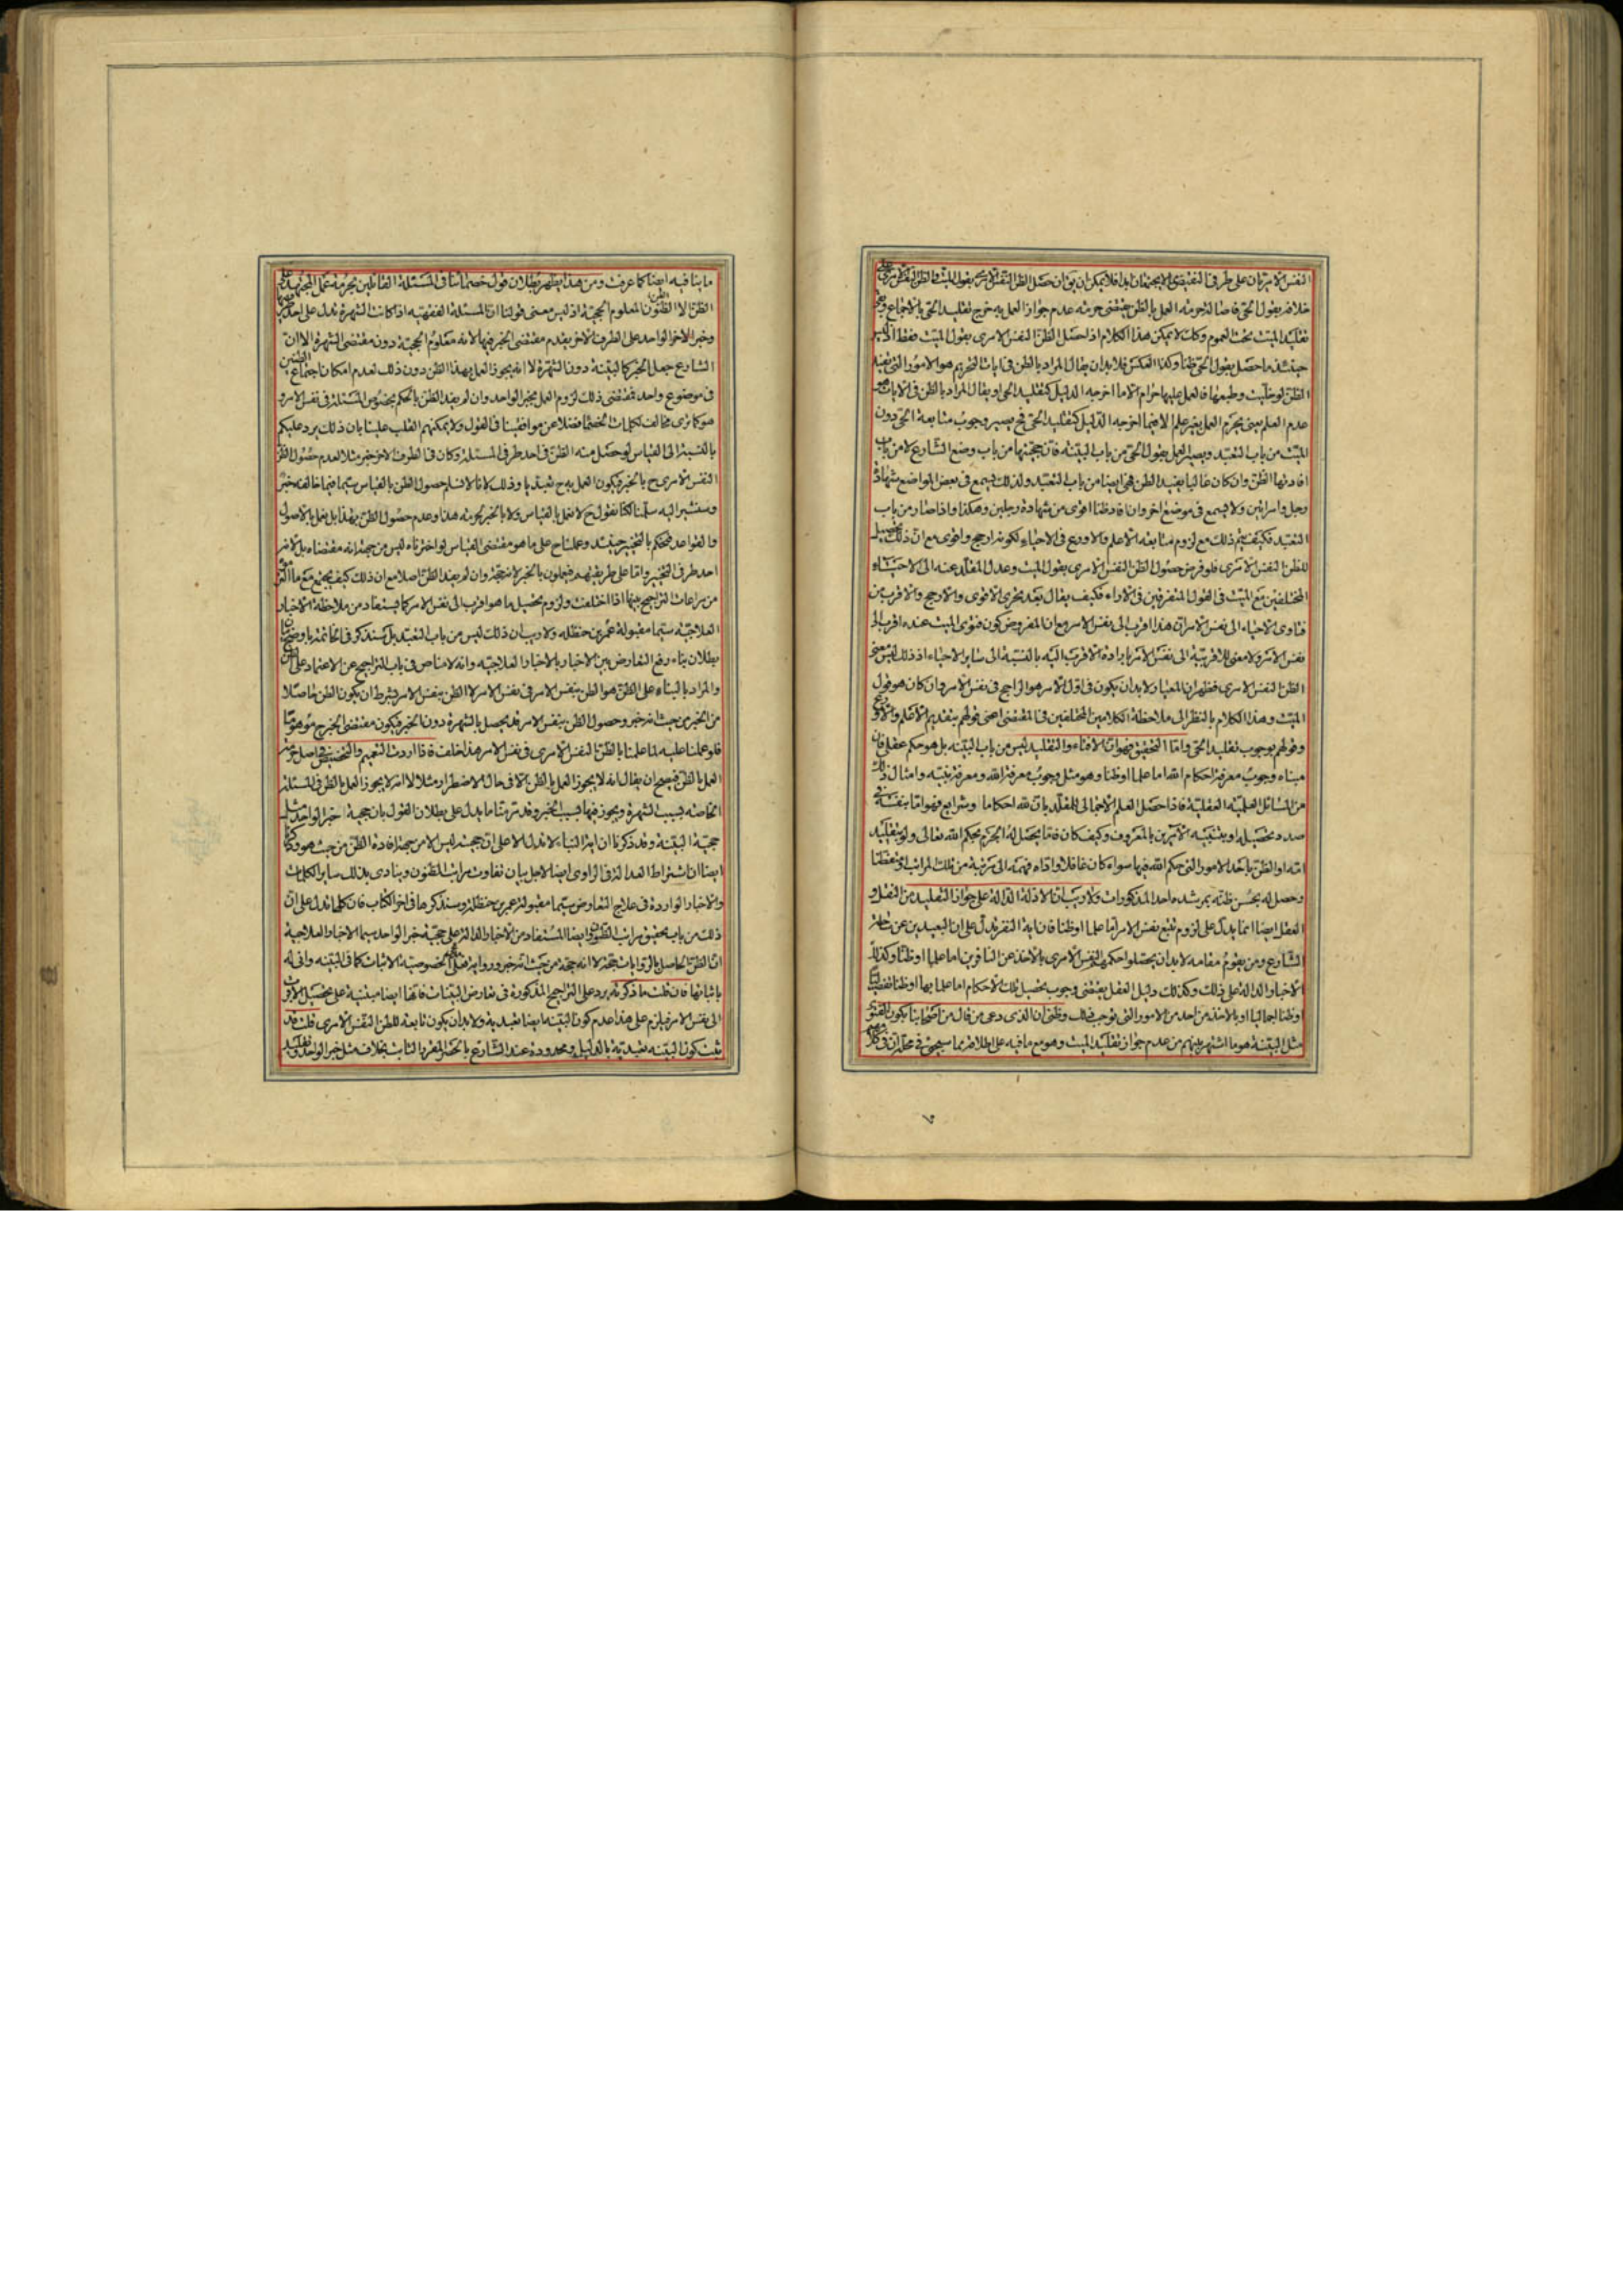 النفس الامريان على طرفى النقيض لا يجتمعان ابدا فلا يمكن ان يقال ان حصل الظن النفس الامرى بقول الميت والظن النفس الامرى على
خلافه بقول الحى فاصالة حرمة العمل بالظن يقتضى حرمته عدم جواز العمل به خرج تقليد الحى بالاجماع وبقى
تقليد الميت تحت العموم وكك لا يمكن هذا الكلام اذا حصل الظن النفس الامرى بقول الميت فقط اذ ليس
حينئذ ما حصل بقول الحى ظنا وكذا العكس فلا بد ان يقال المراد بالظن فى ايات التحريم هو الامور التى يفيد
الظن لو خليت وطبعها فالعمل عليها حرام الا ما اخرجه الدليل كتقليد الحى او يقال المراد بالظن فى الايات هو
عدم العلم يعنى يحرم العمل بغير علم الا فيما اخرجه الدليل كتقليد الحى فح يصير وجوب متابعة الحى دون
الميت من باب التعبد ويصير العمل بقول الحى من باب البينة فان حجيتها من باب وضع الشارع لا من باب
افادتها الظن وان كان غالبا يفيد الظن فهى ايضا من باب التعبد ولذلك يسمع فى بعض المواضع شهادة
رجل وامراتين ولا يسمع فى موضع اخر وان افاد ظنا اقوى من شهادة رجلين وهكذا واذا صار من باب
التعبد فكيف يتم ذلك مع لزوم متابعة الاعلم والاورع فى الاحياء لكونه ارجح واقوى مع ان ذلك تحصيل
للظن النفس الامرى فلو فرض حصول الظن النفس الامرى بقول الميت وعدل المقلد عنه الى الاحياء
المختلفين مع الميت فى القول المتفرقين فى الاراء فكيف يقال بعد تحرى الاقوى والارجح والاقرب من
فتاوى الاحياء الى نفس الامر ان هذا اقرب الى نفس الامر مع ان المفروض كون فتوى الميت عنده اقرب الى
نفس الامر ولا معنى للاقربية الى نفس الامر بارادة الاقرب اليه بالنسبة الى ساير الاحياء اذ ذلك ليس معنى
الظن النفس الامرى فظهر ان المعيار لا بد ان يكون فى اول الامر هو الراجح فى نفس الامر وان كان هو قول
الميت وهذا الكلام بالنظر الى ملاحظة الكلامين المختلفين فى المقتضى اعنى قولهم بتقديم الاعلم والاورع
وقولهم بوجوب تقليد الحى واما التحقيق فهو ان الافتاء والتقليد ليس من باب البينة بل هو حكم عقلى فان
مبناه وجوب معرفة احكام الله اما علما او ظنا وهو مثل وجوب معرفة الله ومعرفة نبيه وامثال ذلك
من المسائل العلمية العقلية فاذا حصل العلم الاجمالى للمقلد بان لله احكاما وشرايع فهو اما بنفسه فى
صدد تحصيله او بتنبيه الامرين بالمعروف وكيف كان فاما يحصل له الجزم بحكم الله تعالى ولو بتقليد
امه او الظن باحد الامور التى حكم الله فيها سواء كان غافلا واداه فهمه الى مرتبة من تلك المراتب او متفطنا
وحصل له بحسن ظنه بمرشده احد المذكورات ولا ريب ان الادلة الدالة على جواز التقليد من النقل و
العقل ايضا انما يدل على لزوم تتبع نفس الامر اما علما او ظنا فان اية النفر تدل على ان البعيدين عن
الشارع ومن يقوم مقامه لا بد ان يحصلوا حكمهم النفس الامرى بالاخذ عن النافرين اما علما او ظنا وكذا
الاخبار الدالة على ذلك وكذلك دليل العقل يقتضى وجوب تحصيل تلك الاحكام اما علما بها او ظنا تفصيليا
او ظنا اجماليا او بالاخذ من احد من الامور التى توجب ذلك وظنى ان الذى دعى من قال من اصحابنا بكون الفتوى
مثل البينة هو ما اشتهر بينهم من عدم جواز تقليد الميت وهو مع ما فيه على اطلاقه مما سيجئ فى محله ان فى كلامهم
ما ينافيه ايضا كما عرفت ومن هذا يظهر بطلان قول خصمائنا فى المسئلة القائلين بحرمة عمل المجتهد على
الظن الا الظنون المعلوم الحجية اذ ليس معنى قولنا ان المسئلة الفقهية اذا كانت الشهرة تدل على احد طرفيها
وخبر الواحد على الطرف الاخر يقدم مقتضى الخبر فيها لانه معلوم الحجية دون مقتضى الشهرة الا ان
الشارع جعل الخبر كالبينة دون الشهرة لا انه يجوز العمل بهذا الظن دون ذلك لعدم امكان اجتماع الظنين
فى موضوع واحد فمقتضى ذلك لزوم العمل بخبر الواحد وان لم يفد الظن بالحكم بخصوص المسئلة فى نفس الامر و
هو كما ترى مخالف لكلمات الخصماء فضلا عن موافقينا فى القول ولا يمكنهم القلب علينا بان ذلك يرد عليكم
بالنسبة الى القياس لو حصل منه الظن فى احد طرفى المسئلة وكان فى الطرف الاخر خبر مثلا لعدم حصول الظن
النفس الامرى ح بالخبر فيكون العمل به ح تعبديا وذلك لانا لا نسلم حصول الظن بالقياس سيما فيما خالفه خبر
وسنشير اليه سلمنا لكنا نقول ح لا نعمل بالقياس ولا بالخبر لحرمة هذا وعدم حصول الظن بهذا بل نعمل بالاصول
والقواعد فنحكم بالتخيير حينئذ وعملنا ح على ما هو مقتضى القياس لو اخترناه ليس من جهة انه مقتضاه بل لانه
احد طرفى التخيير واما على طريقتهم فيعملون بالخبر لانه حجة وان لم يفد الظن اصلا مع ان ذلك كيف يجتمع مع ما
من مراعات التراجيح بينها اذا اختلفت ولزوم تحصيل ما هو اقرب الى نفس الامر كما يستفاد من ملاحظة الاخبار
العلاجية سيما مقبولة عمر بن حنظلة ولا ريب ان ذلك ليس من باب التعبد بل سنذكر فى الخاتمة باوضح بيان
بطلان بناء رفع التعارض بين الاخبار بالاخبار العلاجية وانه لا مناص فى باب التراجيح عن الاعتماد على الظن
والمراد بالبناء على الظن هو الظن بنفس الامر فى نفس الامر لا الظن بنفس الامر بشرط ان يكون الظن حاصلا
من الخبر من حيث انه خبر وحصول الظن بنفس الامر قد يحصل بالشهرة دون الخبر فيكون مقتضى الخبر ح موهوما
فلو عملنا عليه لما عملنا بالظن النفس الامرى فى نفس الامر هذا خلف فاذا اردت التعميم والتخصيص فى اصل حرمة
العمل بالظن فيصح ان يقال انه لا يجوز العمل بالظن الا فى حال الاضطرار مثلا لا انه لا يجوز العمل بالظن فى المسئلة
الخاصة بسبب الشهرة ويجوز فيها بسبب الخبر وقد مر منا ما يدل على بطلان القول بان حجية خبر الواحد مثل
حجية البينة وقد ذكرنا ان اية النباء لا تدل الا على ان حجيته ليس الا من جهة افادة الظن من حيث هو وذكرنا
ايضا ان اشتراط العدالة فى الراوى ايضا لاجل بيان تفاوت مراتب الظنون وينادى بذلك ساير الكلمات
والاخبار الواردة فى علاج التعارض سيما مقبولة عمر بن حنظلة وسنذكرها فى اخر الكتاب فان كلها تدل على ان
ذلك من باب تحقيق مراتب الظنون وايضا المستفاد من الاخبار الدالة على حجية خبر الواحد سيما الاخبار العلاجية
ان الظن الحاصل بالروايات حجة لا انه حجة من حيث انه خبر ورواية فلخصوصية الاثبات كما فى البينة وانى له
باثباتها فان قلت ما ذكرته يرد على التراجيح المذكورة فى تعارض البينات فانها ايضا مبتنية على تحصيل الاقرب
الى نفس الامر فيلزم على هذا عدم كون البينة ايضا تعبدية ولا بد ان يكون تابعة للظن النفس الامرى قلت قد
ثبت كون البينة تعبدية بالدليل ومحدودة عند الشارع بالحد المقرر الثابت بخلاف مثل خبر الواحد وتقليد